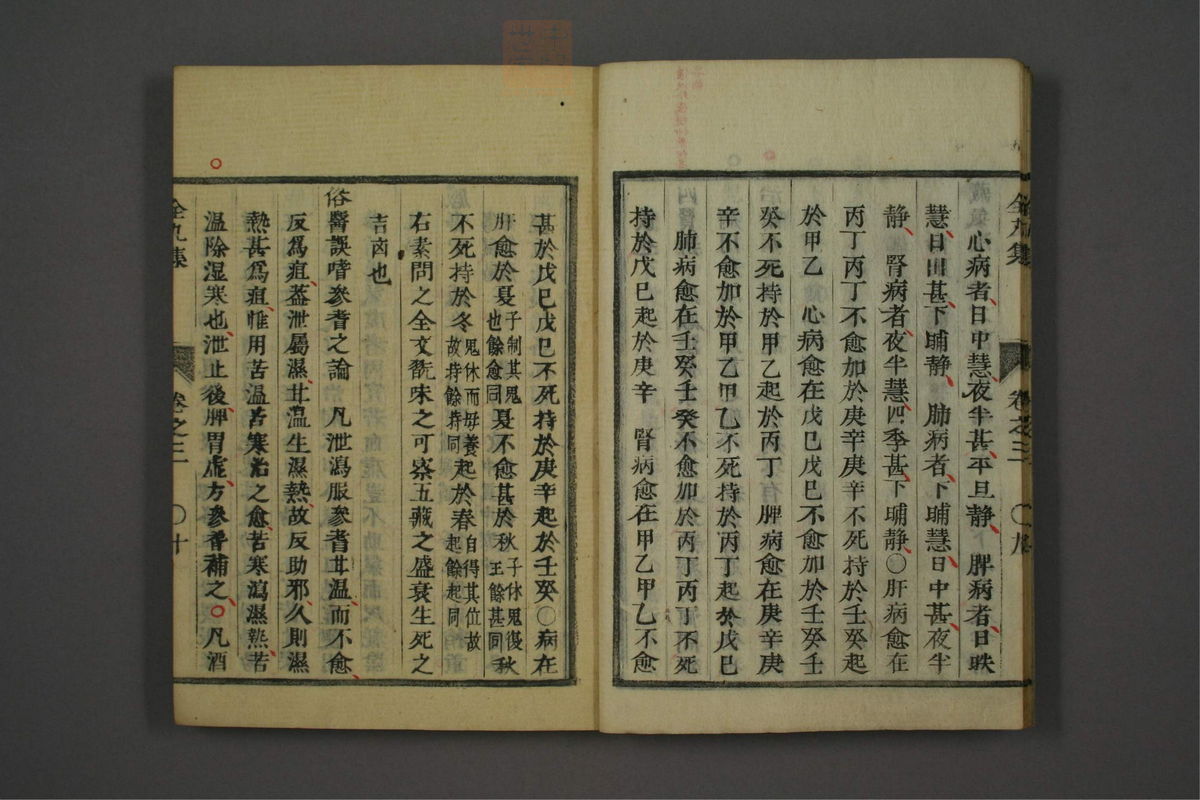 心病者日中慧夜半甚平旦静　脾病者日昳
慧日出甚下晡静　肺病者下晡慧日中甚夜半
静　腎病者夜半慧四季甚下晡静〇肝病愈在
丙丁丙丁不愈加於庚辛庚辛不死持於壬癸起
於甲乙　心病愈在戊巳戊巳不愈加於壬癸壬
癸不死持於甲乙起於丙丁　脾病愈在庚辛庚
辛不愈加於甲乙甲乙不死持於丙丁起於戊巳
肺病愈在壬癸壬癸不愈加於丙丁丙丁不死
持於戊巳起於庚辛　腎病愈在甲乙甲乙不愈
全九集　卷之三　〇九
甚於戊巳戊巳不死持於庚辛起於壬癸〇病在
肝愈於夏子制其鬼也餘愈同夏不愈甚於秋子休鬼復王餘甚同秋
不死持於冬鬼休而母養故持餘持同起於春自得其位故起餘起同
右素問之全文翫味之可察五藏之盛衰生死之
吉凶也
俗醫誤嗜參耆之論　凡泄瀉服參耆甘温而不愈
反爲疽蓋泄屬濕甘温生濕熱故反助邪久則濕
熱甚爲疽惟用苦温苦寒治之愈苦寒瀉濕熱苦
温除湿寒也泄止後脾胃虚方參耆補之〇凡酒
全九集　卷之三　〇十